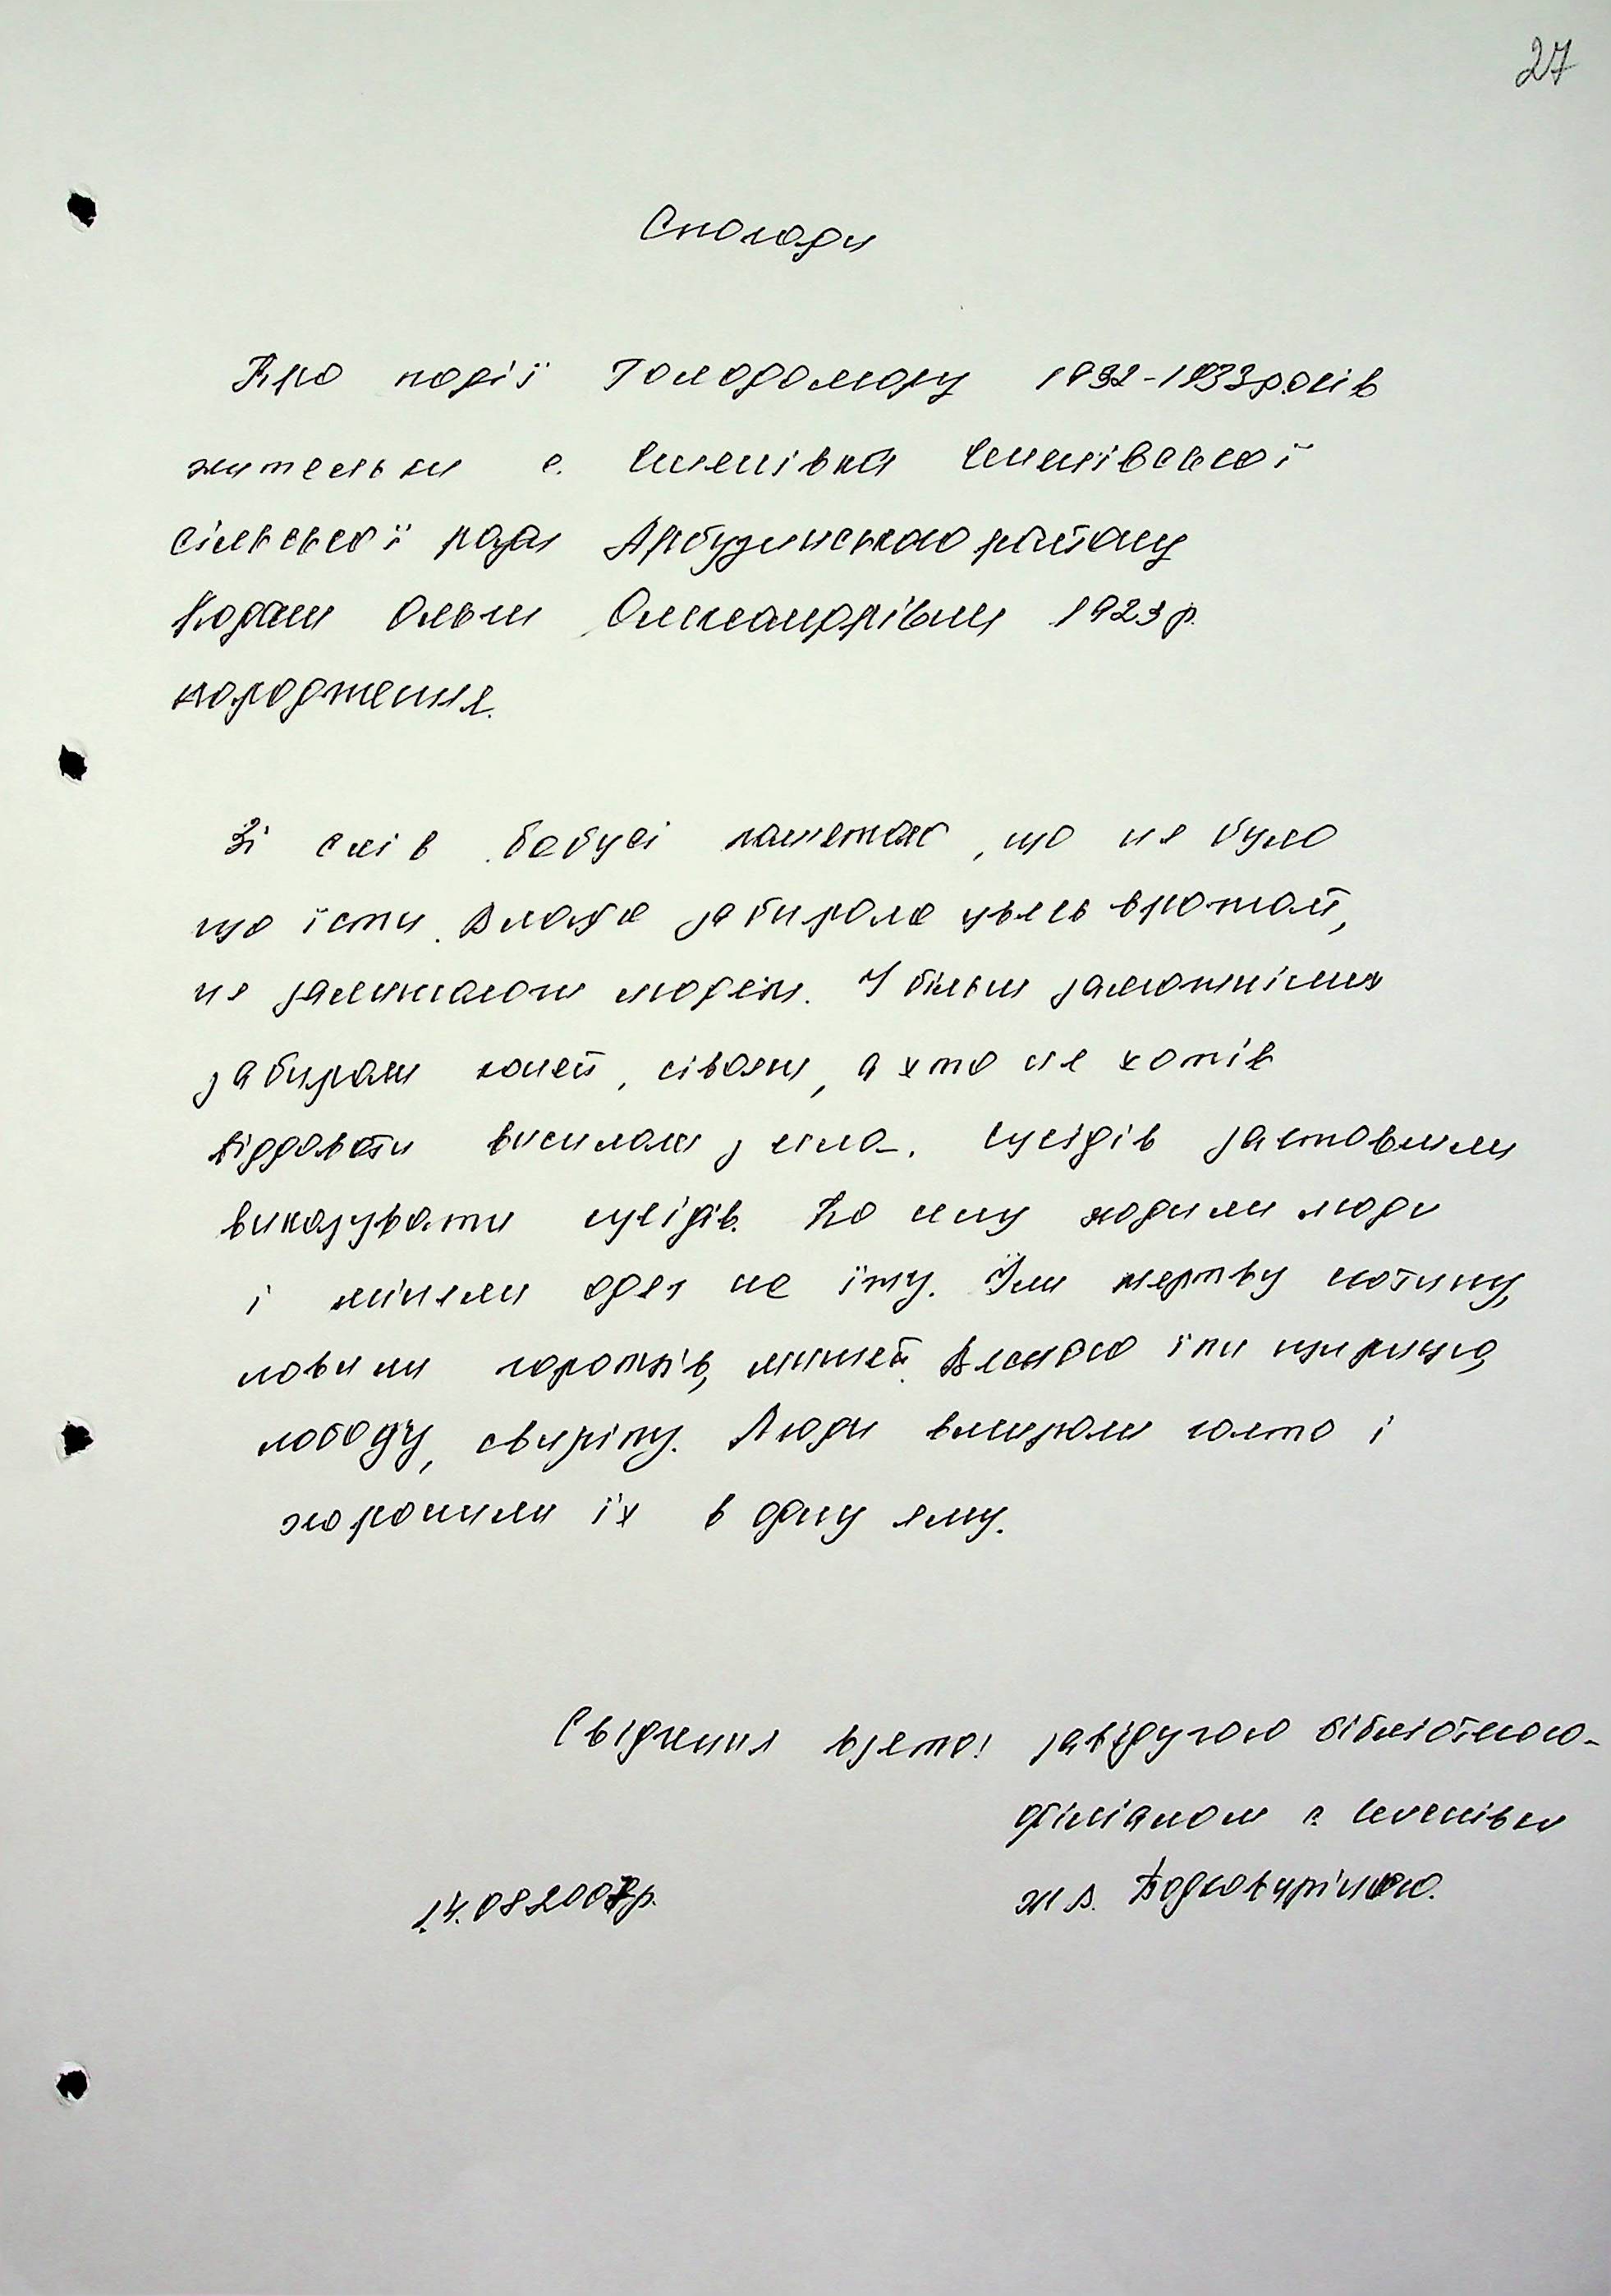 27
Спогади
Про події Голодомору 1932-1933 років
жительки с. Семенівка Семенівської
сільської ради Арбузинського району
Кодаш Ольги Олександрівни 1923 р.
народження.
Зі слів бабусі пам'ятаю, що не було
що їсти. Влада забирала увесь врожай,
не залишаючи людям. У більш заможніших
забирали коней, сівалки, а хто не хотів
віддавати висилали з села. Сусідів заставляли
виказувати сусідів. По селу ходили люди
і міняли одяг на їжу. Їли мертву скотину,
ловили горобців, мишей. Весною їли щирицю,
лободу, свиріпу. Люди вмирали часто і
хоронили їх в одну яму.
Свідчення взято: завідуючою бібліотекою-
філіалом с. Семенівки
14.08.2007р.